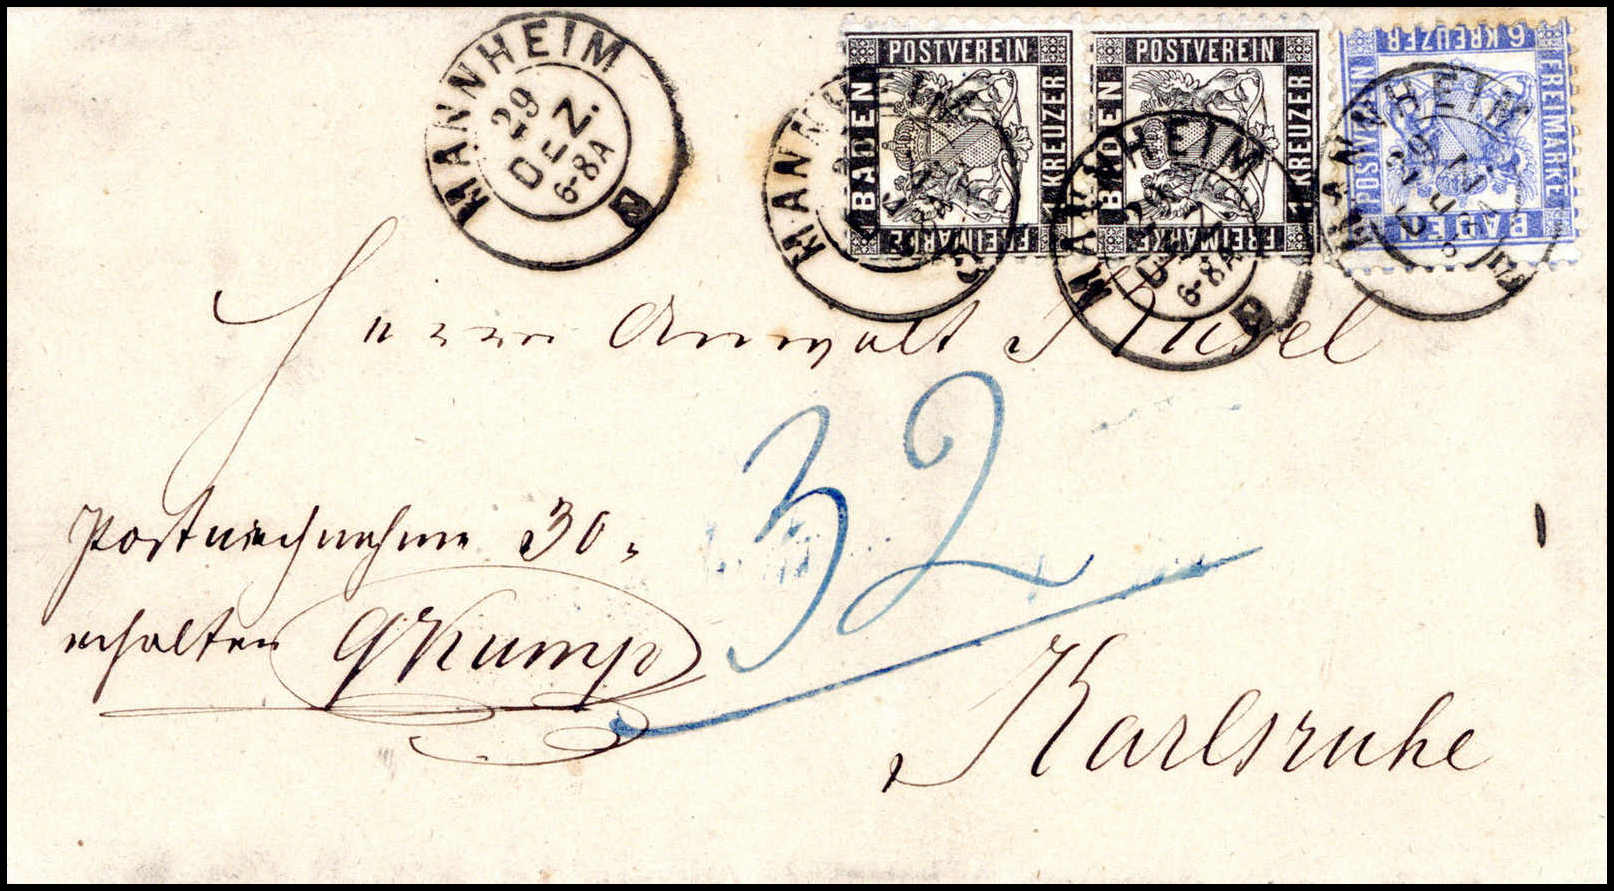 MANNHEIM
29
DEZ.
6-8A
POSTVEREIN
BADEN
1 KREUZER
FREIMARKE
POSTVEREIN
BADEN
1 KREUZER
FREIMARKE
6 KREUZER
POSTVEREIN
FREIMARKE
BADEN
MANNHEIM
MANNHEIM
29
6-8A
MANNHEIM
29
Herrn Anwalt
32
Postnachnahme 30
erhalten GKump
Karlsruhe